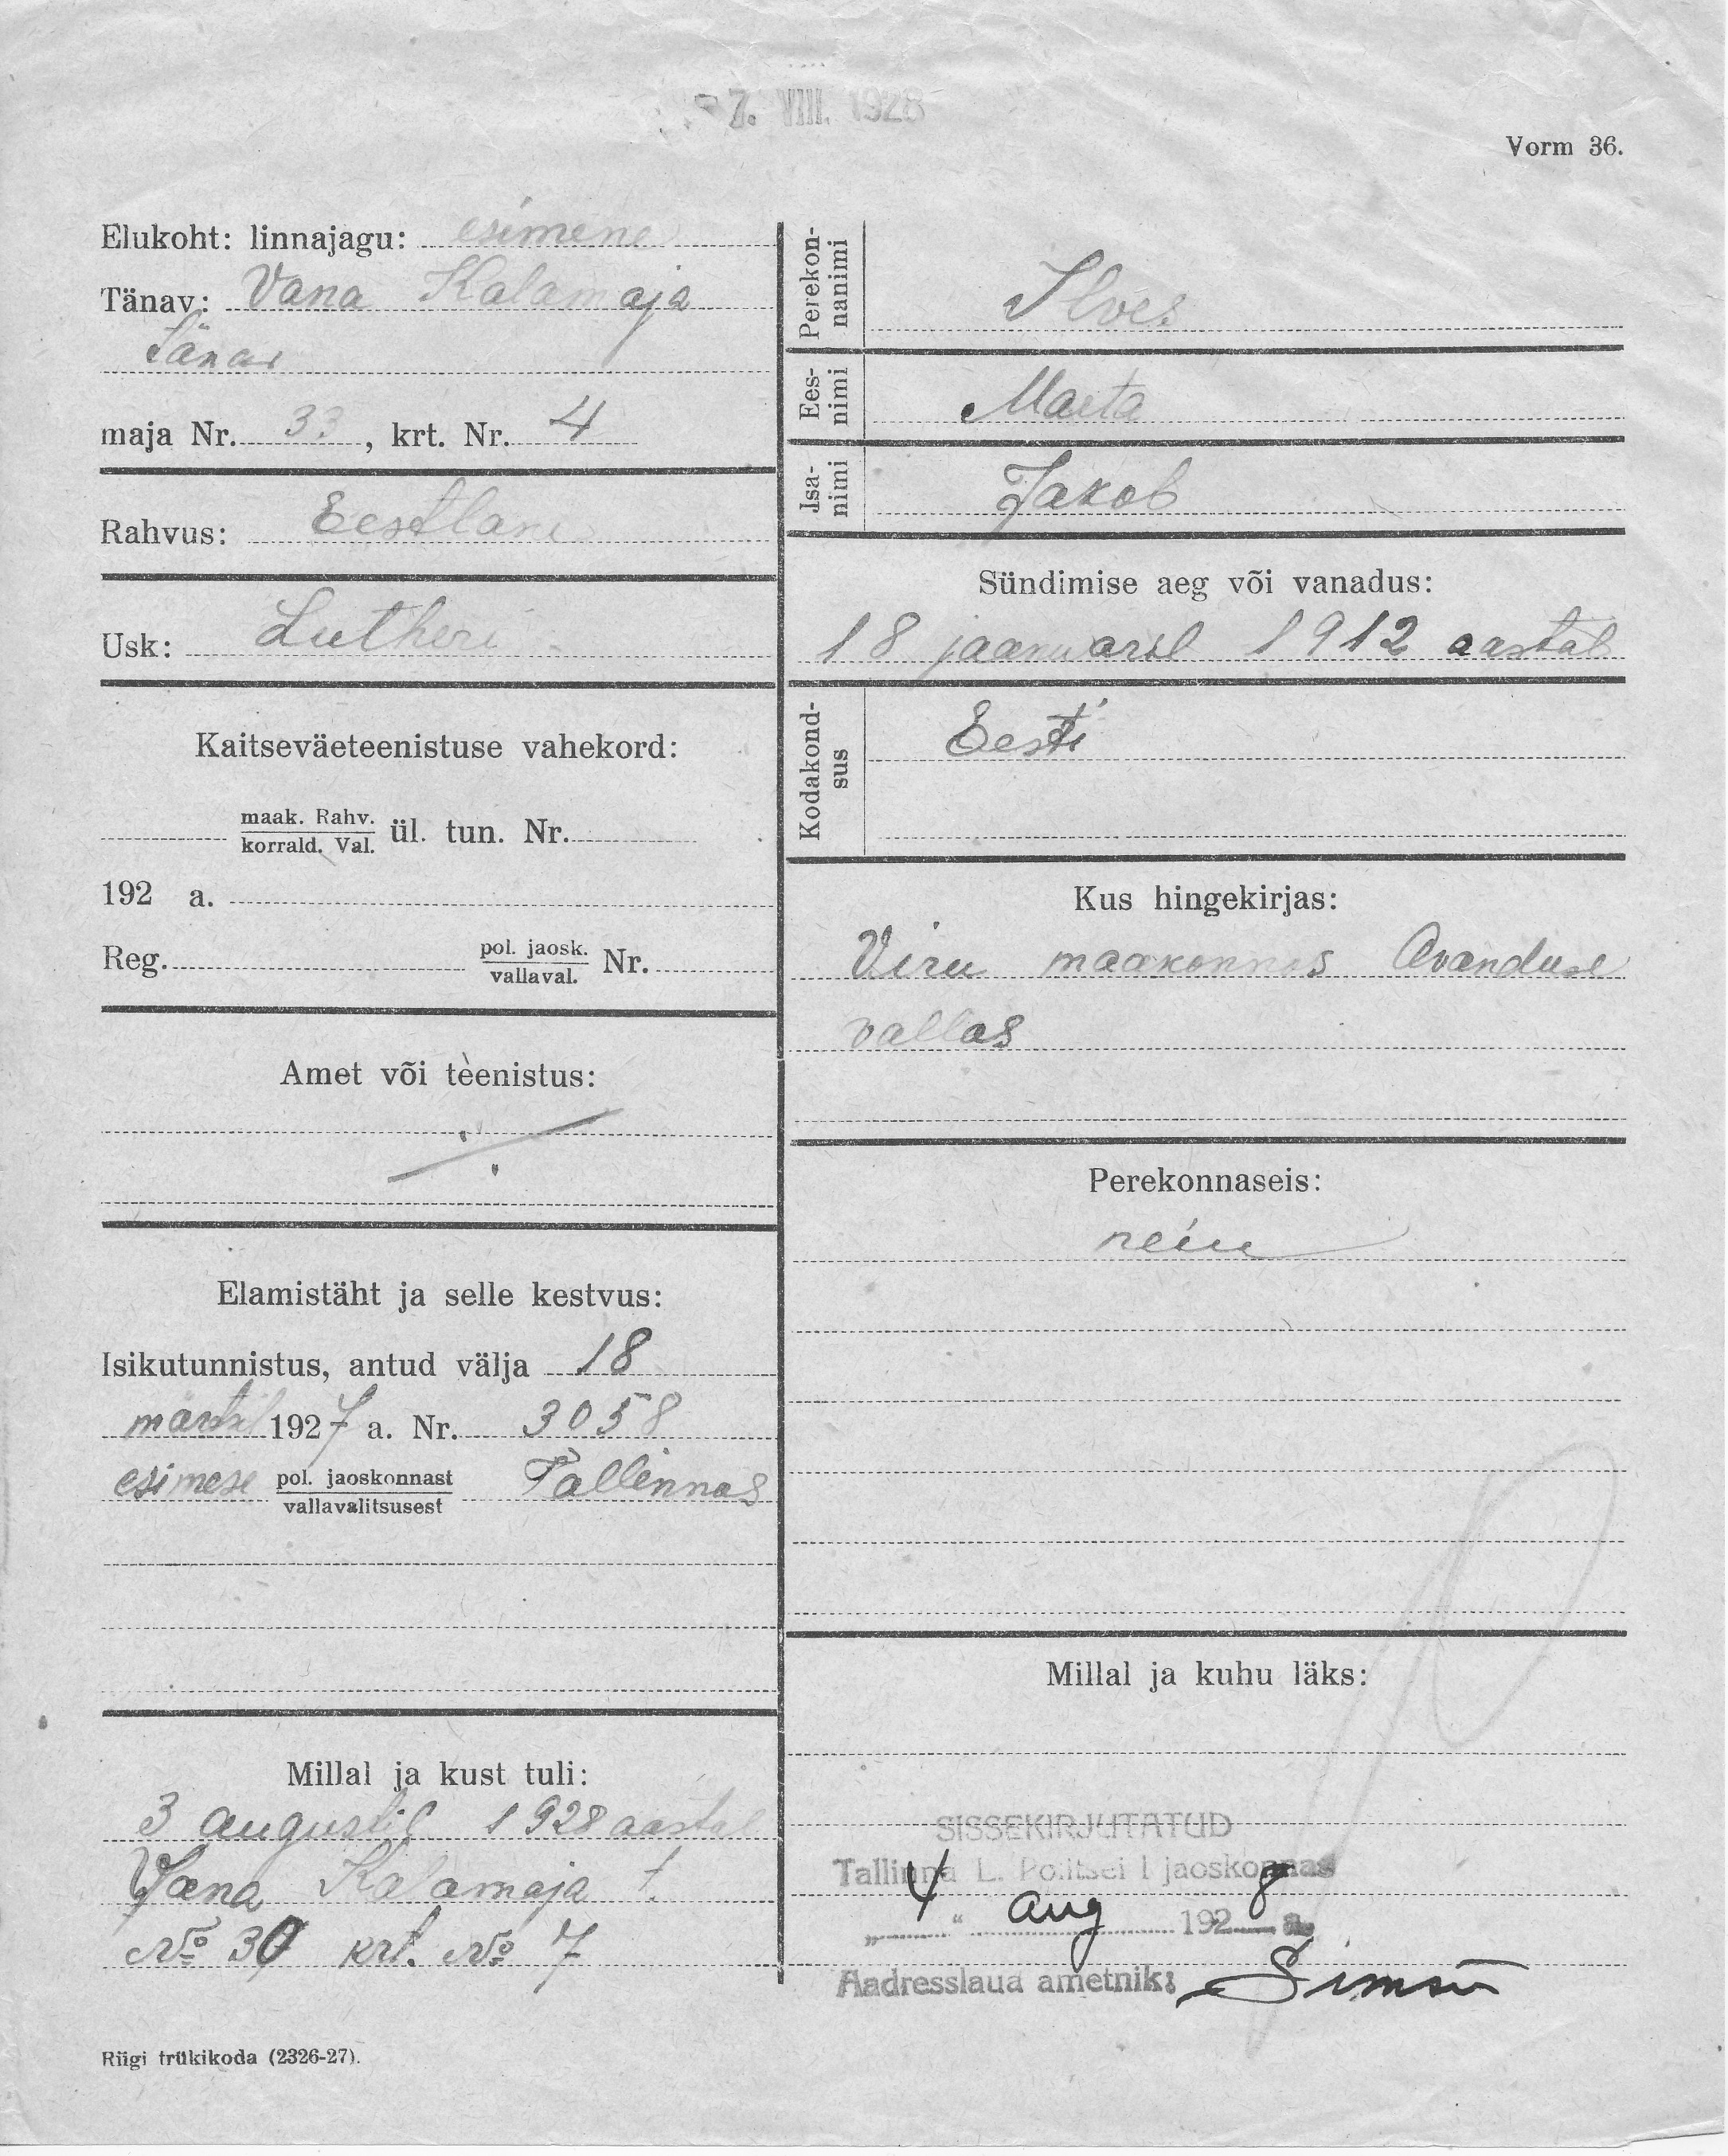 7. VIII. 1928
Vorm 36.
Elukoht: linnajagu: esimene
Tänav: Vana Kalamaja
tänav
maja Nr. 33, krt. Nr. 4
Rahvus: Eestlane
Usk: Lutheri
Kaitseväeteenistuse vahekord:
maak. Rahv.
korrald. Val. ül. tun. Nr.
192 a.
Reg. pol. jaosk. Nr.
vallaval.
Amet või teenistus:
Elamistäht ja selle kestvus:
Isikutunnistus, antud välja 18
märtsil 1927 a. Nr. 3058
esimese pol. jaoskonnast Tallinnas
vallavalitsusest
Millal ja kust tuli:
3 augustil 1928 aastal
Vana Kalamaja t.
№ 30 krt. № 7
Riigi trükikoda (2326-27).
Perekon-
nanimi
Ilves
Ees-
nimi
Maeta
Isa-
nimi
Jakob
Sündimise aeg või vanadus:
18 jaanuaril 1912 aastal
Kodakond-
sus
Eesti
Kus hingekirjas:
Viru maakonnas Avanduse
vallas
Perekonnaseis:
neiu
Millal ja kuhu läks:
SISSEKIRJUTATUD
Tallinna L. Politsei I jaoskonnas
„ 4 “ aug 1928 a.
Aadresslaua ametnik: